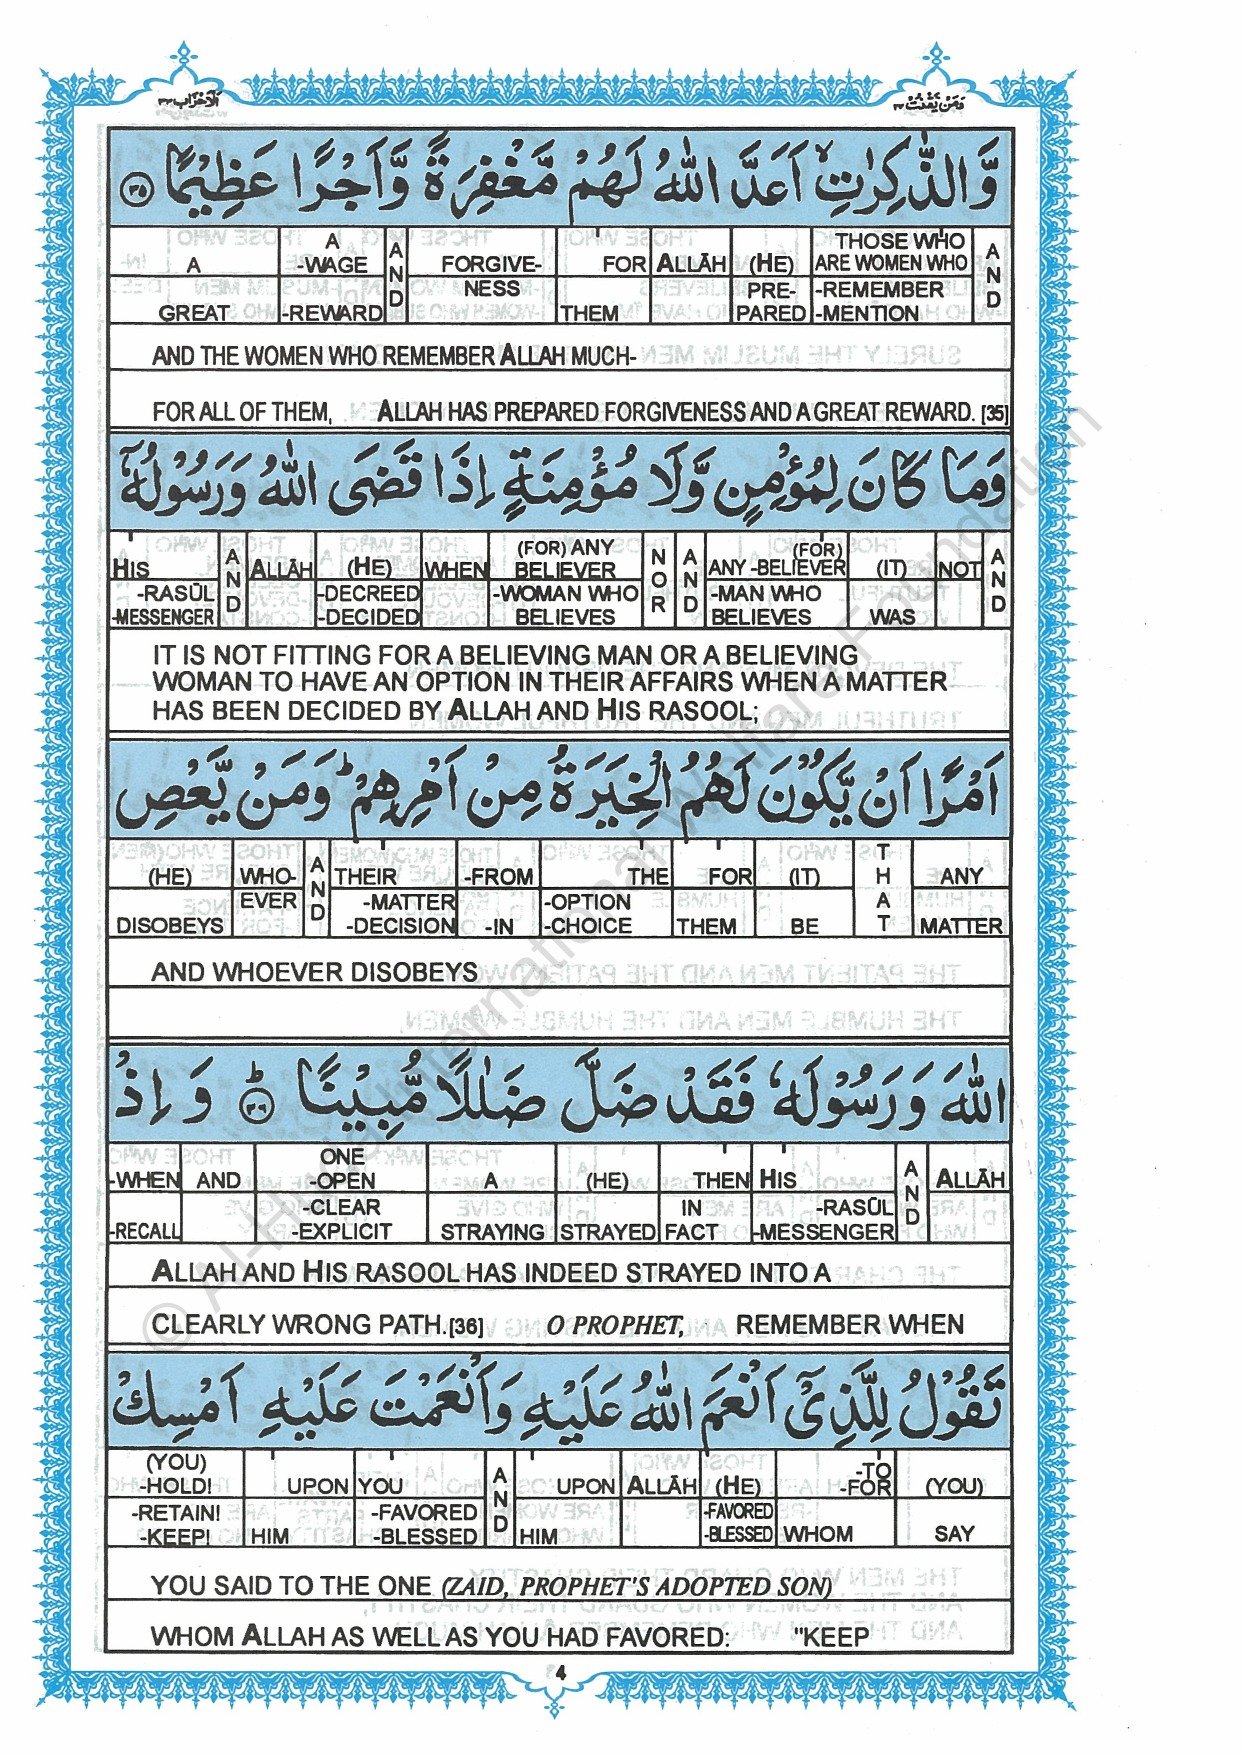 اَلْاَحْزَاب ٣٣
وَمَنْ يَّقْنُتْ ٢٢
وَّالذّٰكِرٰتِ ۙ اَعَدَّ اللّٰهُ لَهُمْ مَّغْفِرَةً وَّاَجْرًا عَظِيْمًا ﴿٣٥﴾
A GREAT | A -WAGE -REWARD | AND | FORGIVE-NESS | FOR THEM | ALLĀH | (HE) PRE-PARED | THOSE WHO ARE WOMEN WHO -REMEMBER -MENTION | AND
AND THE WOMEN WHO REMEMBER ALLAH MUCH-
FOR ALL OF THEM, ALLAH HAS PREPARED FORGIVENESS AND A GREAT REWARD. [35]
وَمَا كَانَ لِمُؤْمِنٍ وَّلَا مُؤْمِنَةٍ اِذَا قَضَى اللّٰهُ وَرَسُوْلُهٗۤ
HIS -RASŪL -MESSENGER | AND | ALLĀH | (HE) -DECREED -DECIDED | WHEN | (FOR) ANY BELIEVER -WOMAN WHO BELIEVES | NOR | AND | (FOR) ANY -BELIEVER -MAN WHO BELIEVES | (IT) WAS | NOT | AND
IT IS NOT FITTING FOR A BELIEVING MAN OR A BELIEVING
WOMAN TO HAVE AN OPTION IN THEIR AFFAIRS WHEN A MATTER
HAS BEEN DECIDED BY ALLAH AND HIS RASOOL;
اَمْرًا اَنْ يَّكُوْنَ لَهُمُ الْخِيَرَةُ مِنْ اَمْرِهِمْ ؕ وَمَنْ يَّعْصِ
(HE) DISOBEYS | WHO-EVER | AND | THEIR -MATTER -DECISION | -FROM -IN | THE -OPTION -CHOICE | FOR THEM | (IT) BE | THAT | ANY MATTER
AND WHOEVER DISOBEYS
اللّٰهَ وَرَسُوْلَهٗ فَقَدْ ضَلَّ ضَلٰلًا مُّبِيْنًا ﴿٣٦﴾ؕ وَاِذْ
-WHEN -RECALL | AND | ONE -OPEN -CLEAR -EXPLICIT | A STRAYING | (HE) STRAYED | THEN IN FACT | HIS -RASŪL -MESSENGER | AND | ALLĀH
ALLAH AND HIS RASOOL HAS INDEED STRAYED INTO A
CLEARLY WRONG PATH.[36] O PROPHET, REMEMBER WHEN
تَقُوْلُ لِلَّذِيْۤ اَنْعَمَ اللّٰهُ عَلَيْهِ وَاَنْعَمْتَ عَلَيْهِ اَمْسِكْ
(YOU) -HOLD! -RETAIN! -KEEP! | UPON HIM | YOU -FAVORED -BLESSED | AND | UPON HIM | ALLĀH | (HE) -FAVORED -BLESSED | -TO -FOR WHOM | (YOU) SAY
YOU SAID TO THE ONE (ZAID, PROPHET'S ADOPTED SON)
WHOM ALLAH AS WELL AS YOU HAD FAVORED: "KEEP
4
© Al-Huda International Welfare Foundation